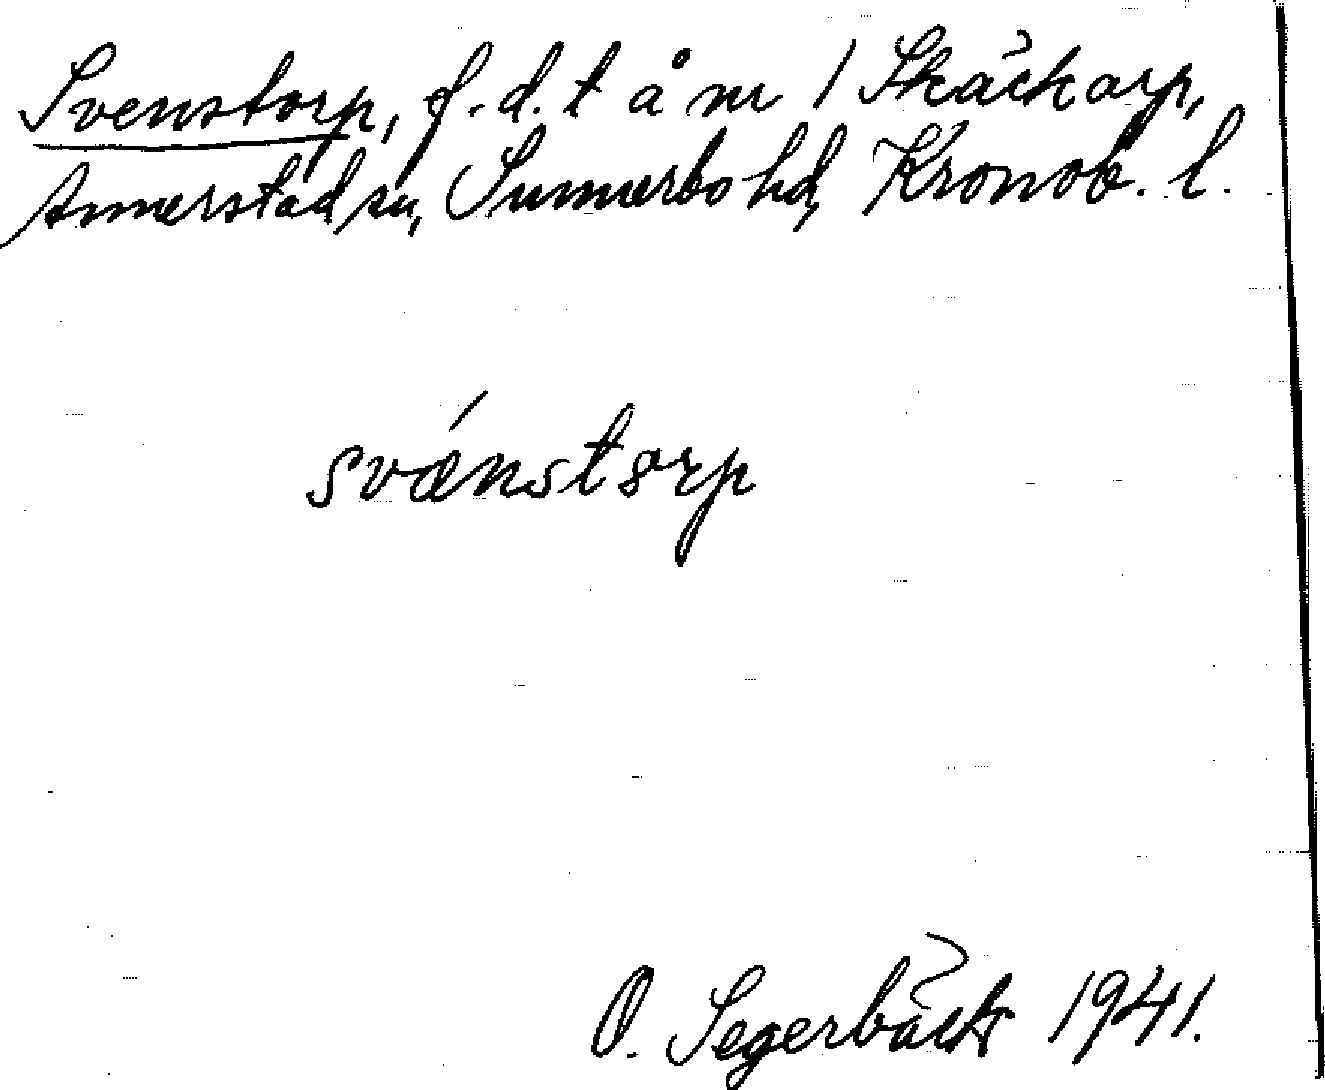 Svenstorp, f.d.t å nr 1 Skäckarp,
Annerstad sn, Sunnerbo hd, Kronob. l.
svǽnstorp
O. Segerbäck 1941.